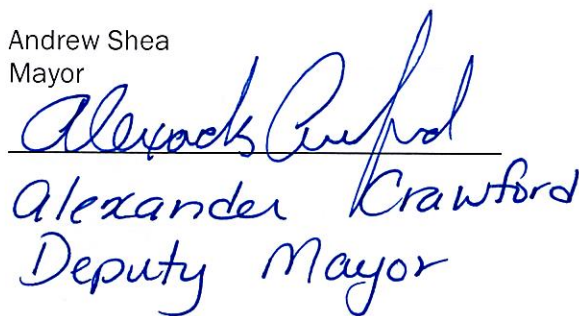 Andrew Shea
Mayor
Alexander Crawford
Alexander Crawford
Deputy Mayor